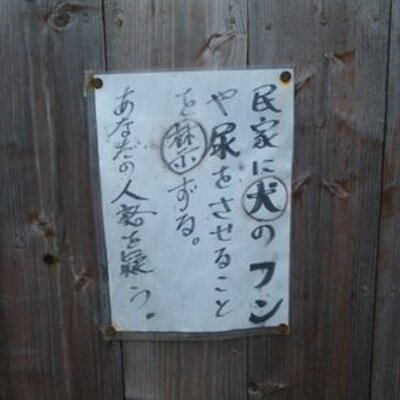 民家に犬のフン
や尿をさせること
を禁示ずる。
あなたの人格を疑う。